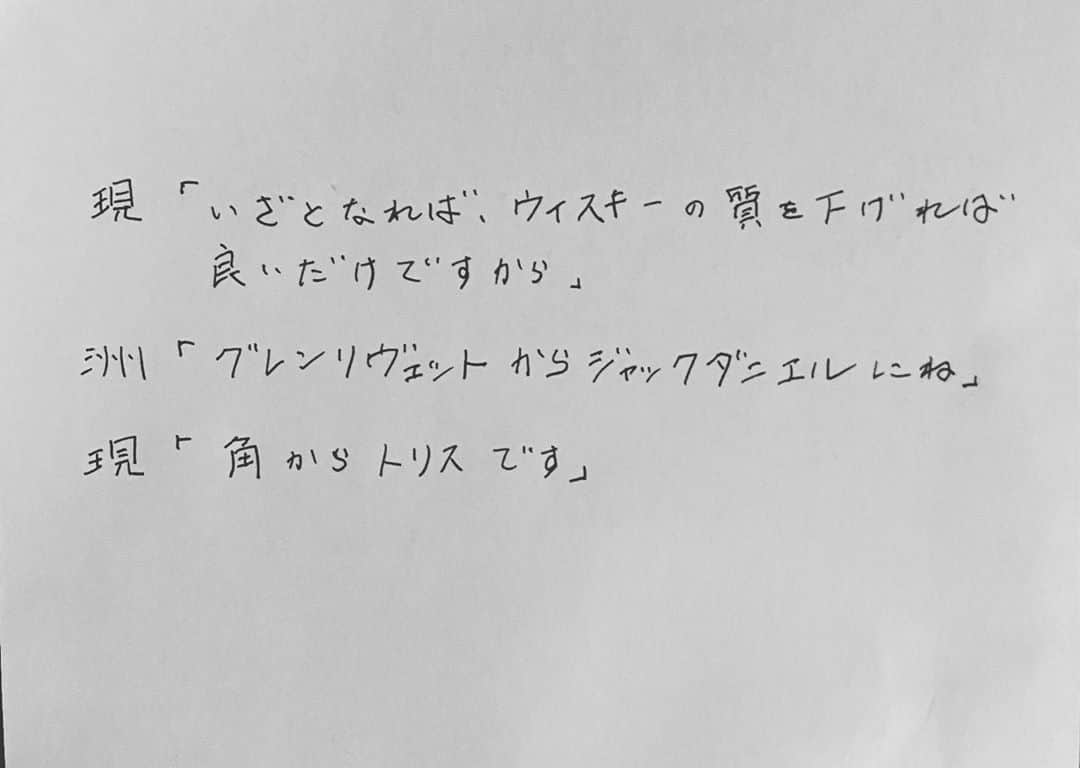 現「いざとなれば、ウィスキーの質を下げれば
良いだけですから」
洲「グレンリヴェットからジャックダニエルにね」
現「角からトリスです」